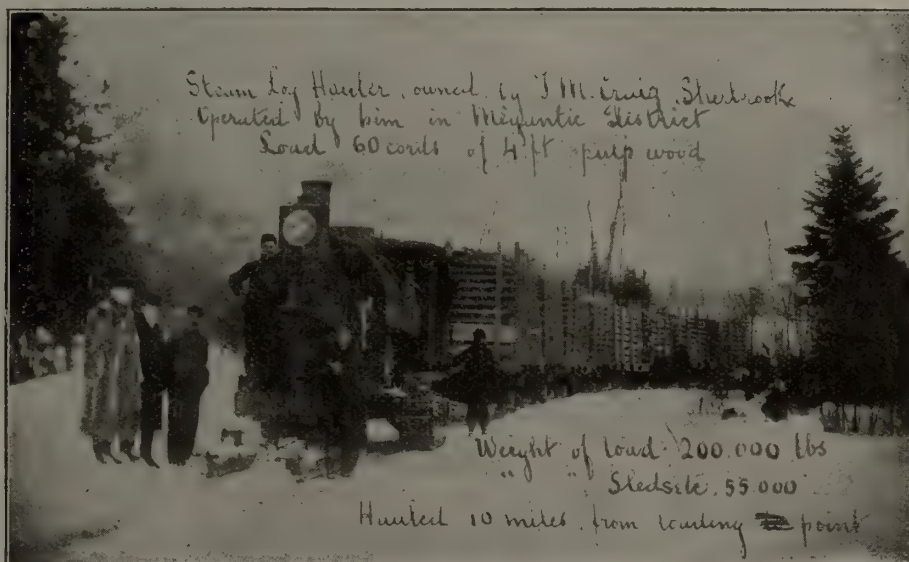 Steam Log Hauler, owned by J M. Craig Sherbrooke
Operated by him in Megantic District
Load 60 cords of 4 ft pulp wood
Weight of load 200.000 lbs
" " Sleds etc. 55.000
Hauled 10 miles from loading point